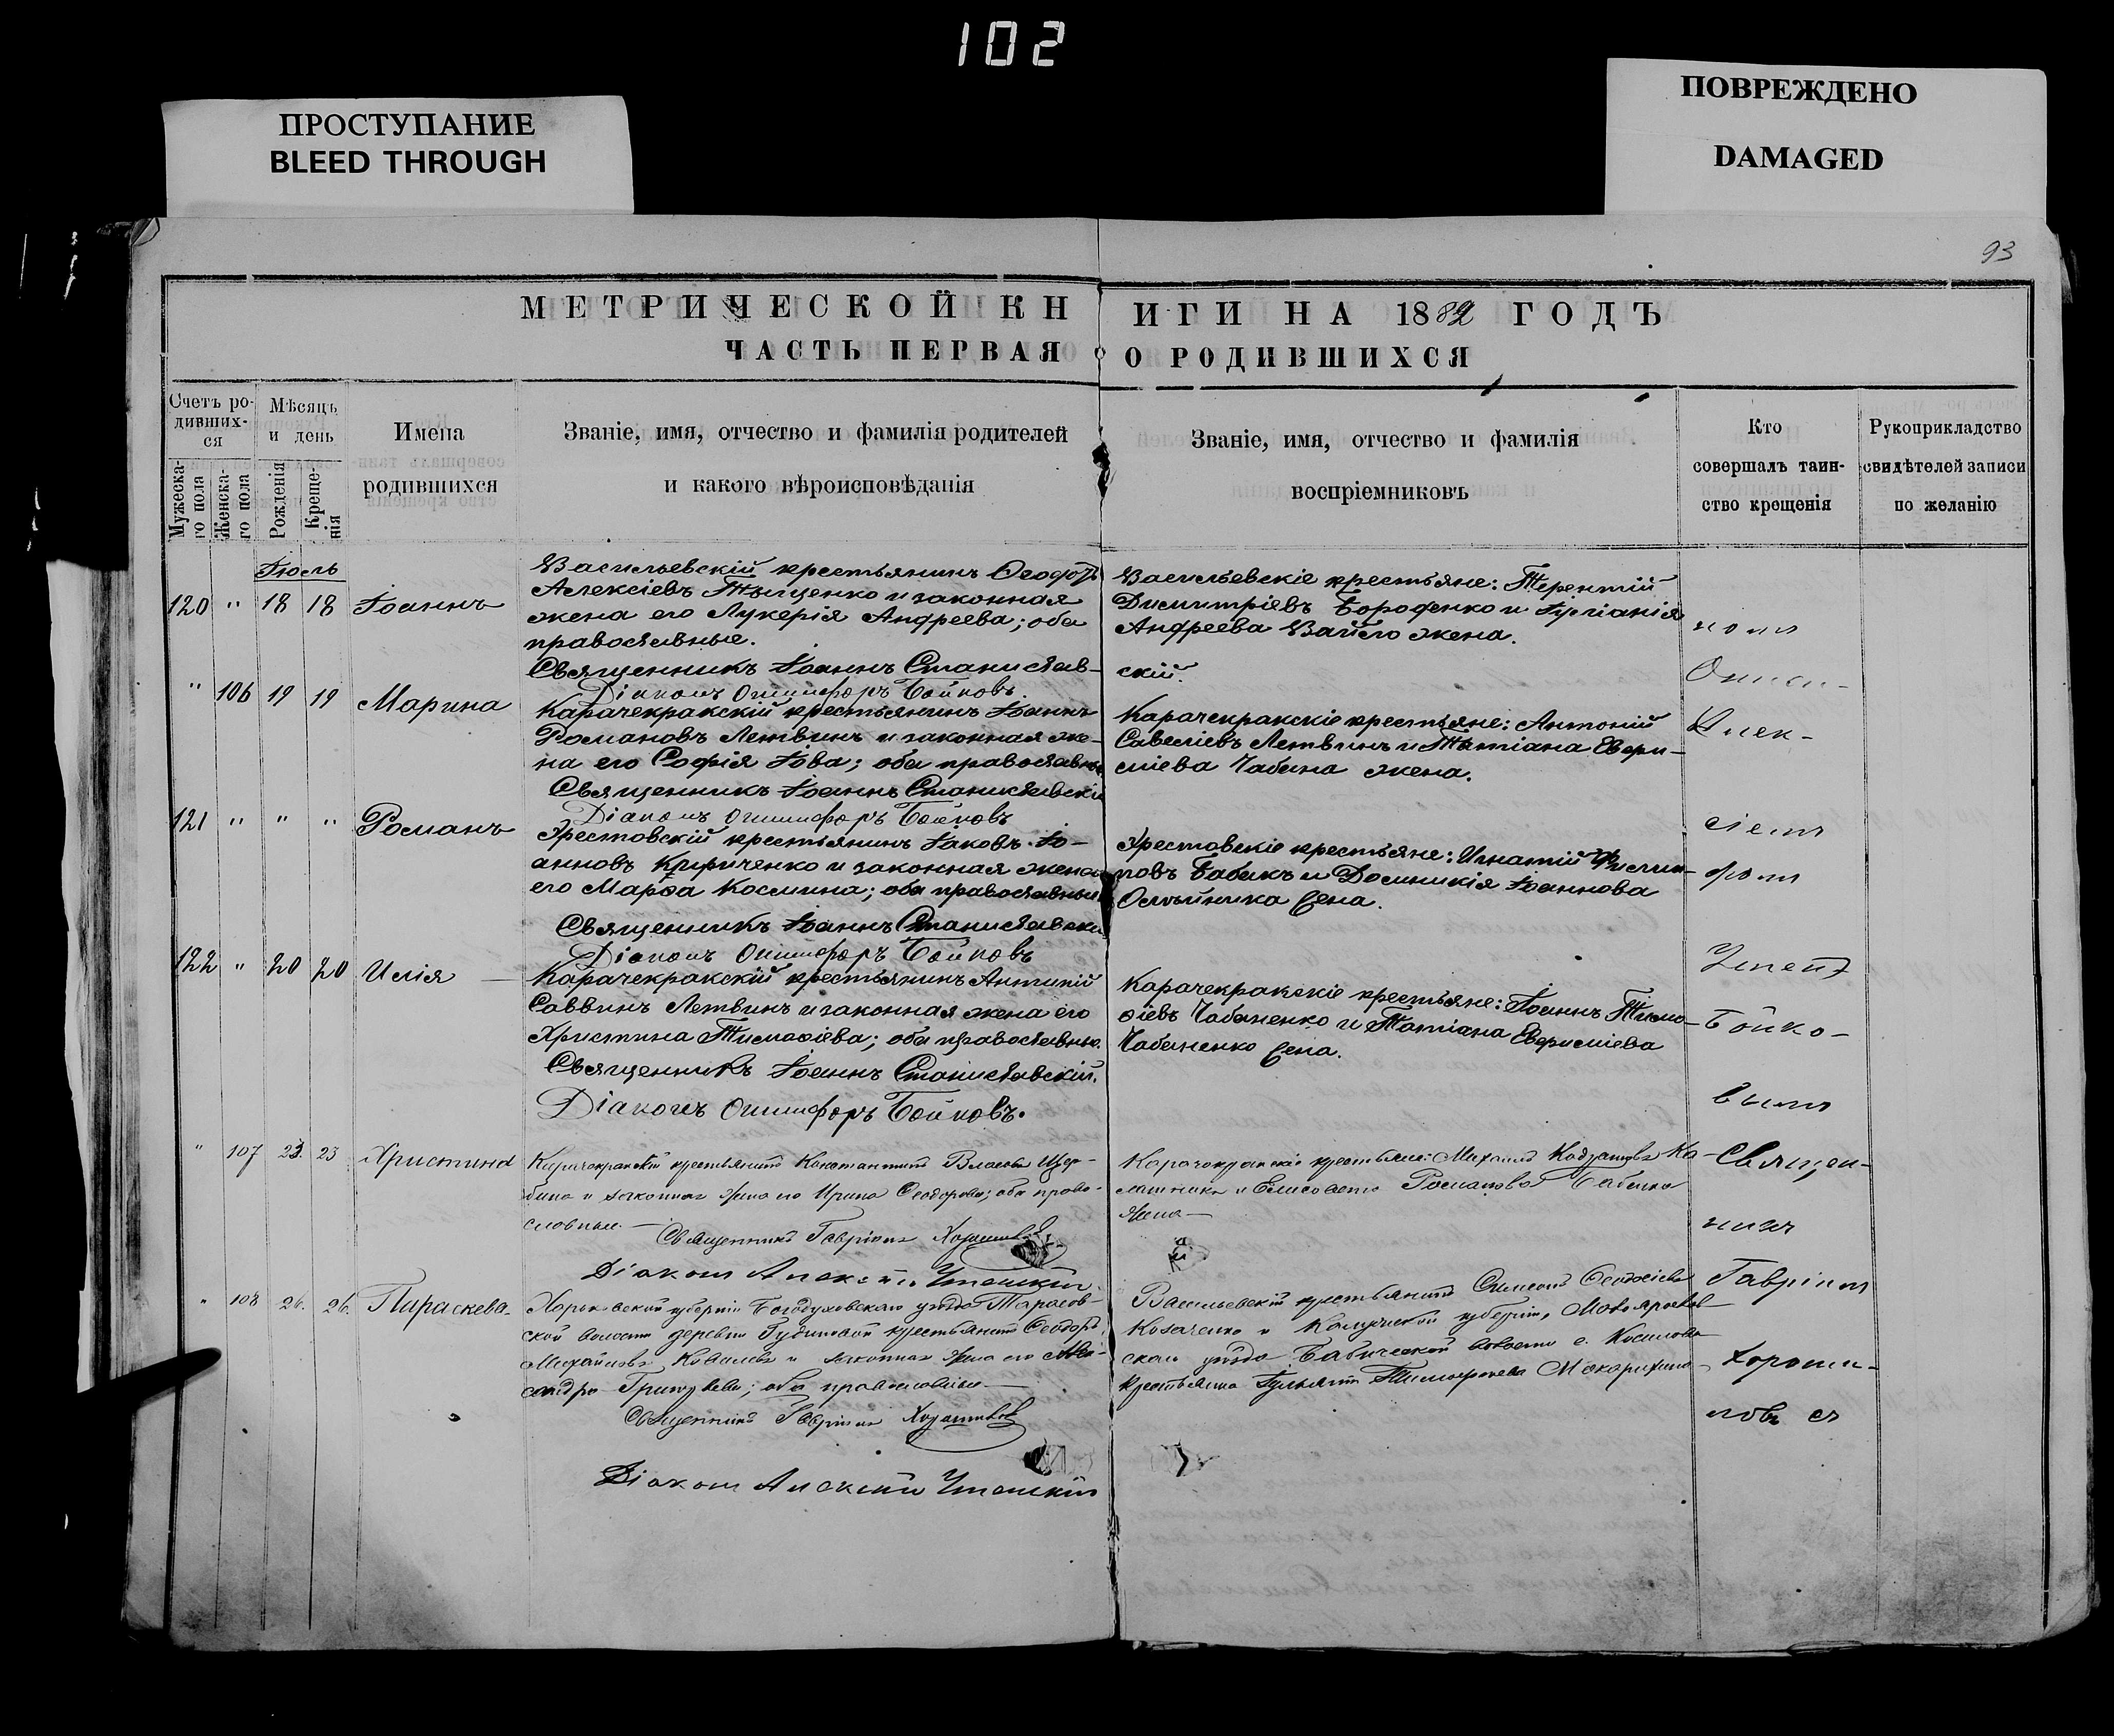 102
ПРОСТУПАНИЕ
BLEED THROUGH
ПОВРЕЖДЕНО
DAMAGED
93
МЕТРИЧЕСКОЙ КНИГИ НА 1882 ГОДЪ
ЧАСТЬ ПЕРВАЯ О РОДИВШИХСЯ
Счетъ родивших-ся
Мужеска-го пола
Женска-го пола
Мѣсяцъ и день
Рожденія
Креще-нія
Имена
родившихся
Званіе, имя, отчество и фамилія родителей
и какого вѣроисповѣданія
Званіе, имя, отчество и фамилія
воспріемниковъ
Кто
совершалъ таин-
ство крещенія
Рукоприкладство
свидѣтелей записи
по желанію
Іюль
120 " 18 18 Іоаннъ
Васильевскій крестьянинъ Ѳеодотъ
Алексіевъ Тыщенко и законная
жена его Лукерія Андреева; оба
православные.
Священникъ Іоаннъ Станиславскій.
Діаконъ Онисифоръ Бойковъ.
Васильевскіе крестьяне: Терентій
Димитріевъ Бороденко и Іуліанія
Андреева Вайло жена.
" 106 19 19 Марина
Карачекракскій крестьянинъ Іоаннъ
Романовъ Летвинъ и законная же-
на его Софія Іова; оба православные
Священникъ Іоаннъ Станиславскій
Діаконъ Онисифоръ Бойковъ
Карачекракскіе крестьяне: Антоній
Савеліевъ Летвинъ и Татіана Еври-
миева Чабана жена.
121 " " " Романъ
Хрестовскій крестьянинъ Іаковъ Іо-
анновъ Кириченко и законная жена
его Марѳа Космина; оба православные
Священникъ Іоаннъ Станиславскій
Діаконъ Онисифоръ Бойковъ
Хрестовскіе крестьяне: Игнатій Филип-
повъ Бабакъ и Домникія Іоаннова
122 " 20 20 Илія
Карачекракскій крестьянинъ
Саввинъ Летвинъ и законная жена его
Христина Тимоѳіева; оба православные.
Священникъ Іоаннъ Станиславскій.
Діаконъ Онисифоръ Бойковъ.
Карачекракскіе крестьяне: Іоаннъ Тимо-
ѳіевъ Чабаненко и Татіана
Чабаненко
" 107 23. 23 Христина
Карачекракскій крестьянинъ Константинъ Власовъ Щер-
бина и законная жена его Ирина Ѳеодорова; оба право-
славные. —
Священникъ Гавріилъ
Діаконъ Алексій
Карачекракскіе крестьяне: Михаилъ
и Елисавета Романова
жена —
" 108 26. 26. Параскева.
Харьковской губерніи Богодуховскаго уѣзда Тарасов-
ской волости деревни крестьянинъ Ѳеодоръ
Михайловъ Ковалевъ и законная жена его Алек-
сандра Григорьева; оба православные —
Священникъ Гавріилъ
Діаконъ Алексій
Васильевскій крестьянинъ Симеонъ Ѳеодосіевъ
Козаченко и Калужской губерніи,
скаго уѣзда волости с.
крестьянка Тимофеева
Священ-
никъ
Гавріилъ